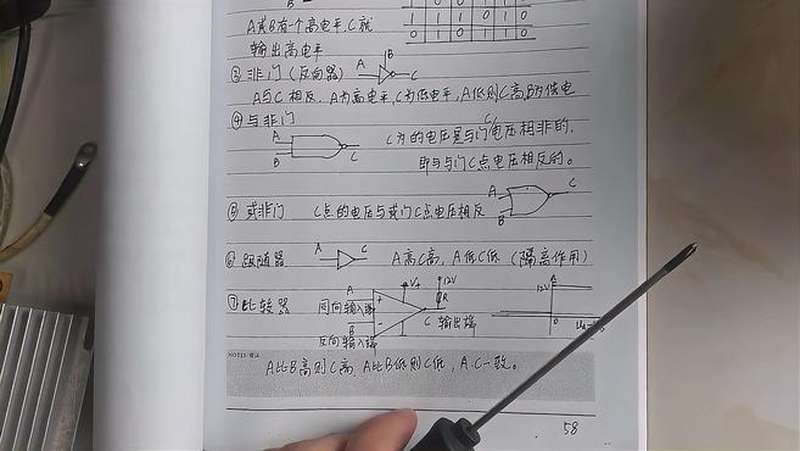 B
1 0 0 1
A或B有一个高电平,C就 1 1 0 1 0
输出高电平 0 1 0 1 1 0
③ 非门 (反向器) A B C
A与C相反. A为高电平,C为低电平,A低则C高,B为供电
④ 与非门
A B C C为的电压是与门C电压相非的.
即与与门C点电压相反的。
⑤ 或非门 C点的电压与或门C点电压相反 A B C
⑥ 跟随器 A C A高C高, A低C低 (隔离作用)
⑦ 比较器 A V+ 12V R 12V
同向输入端 + C 输出端 0
B -
反向输入端
NOTES
A比B高则C高, A比B低则C低, A.C一致。
58